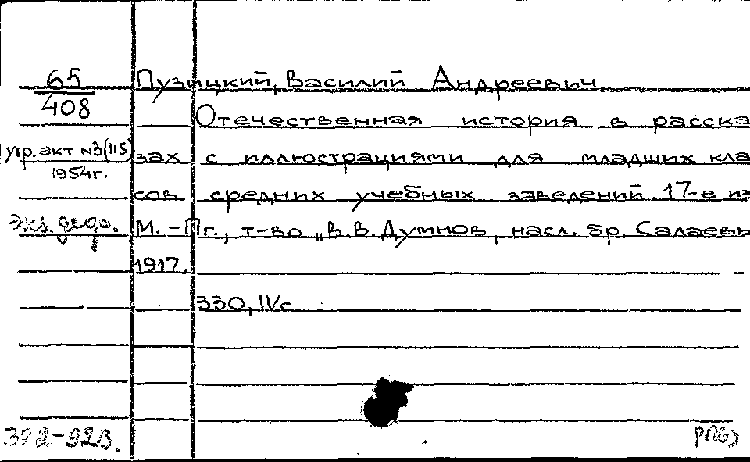 65
Пузицкий, Василий Андреевич
408
Отечественная история в расска
укр. акт №3(115)
зах с иллюстрациями для младших кла
1954г.
сов средних учебных заведений. 17-е из
М. - Пг., т-во „В.В. Думнов, насл. бр. Салаевы
1917.
330, IV с.